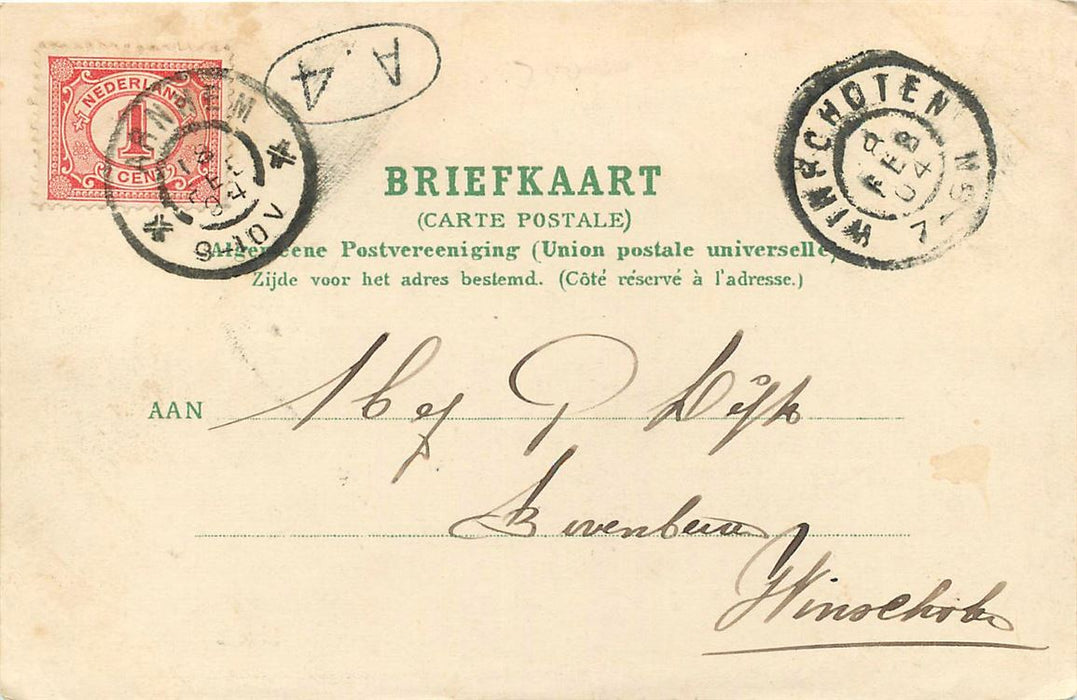 NEDERLAND
1
1 CENT
ARNHEM
FEB
04
9-10V
A.4
WINSCHOTEN
FEB
04
7-
BRIEFKAART
(CARTE POSTALE)
Algemeene Postvereeniging (Union postale universelle)
Zijde voor het adres bestemd. (Côté réservé à l'adresse.)
AAN
Dijk
Winschoten